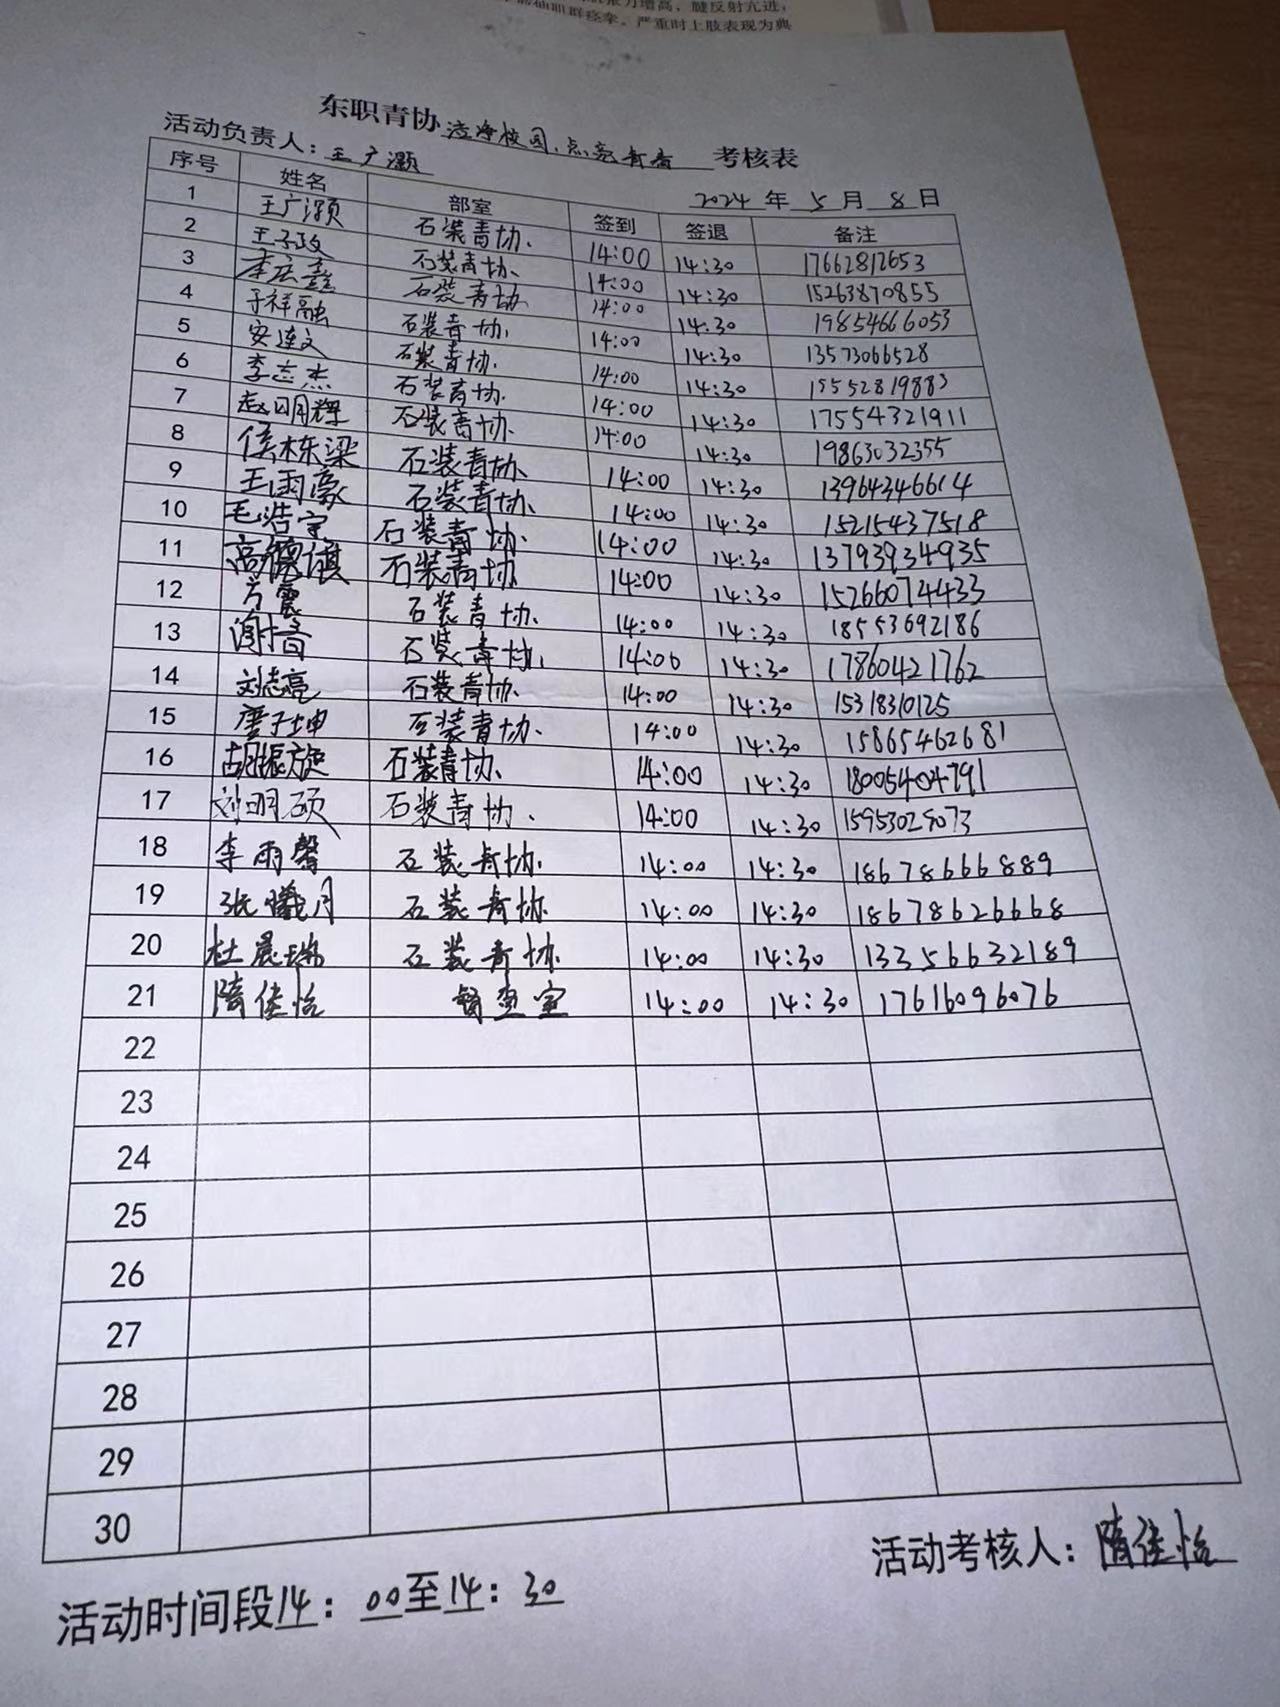 力增高，腱反射亢进，
肌群痉挛。严重时上肢表现为典
东职青协洁净校园,点亮青春 考核表
活动负责人：王广灏
2024 年 5 月 8 日
序号 姓名 部室 签到 签退 备注
1 王广灏 石装青协. 14:00 14:30 17662812653
2 王子政 石装青协. 14:00 14:30 15263870855
3 李宏鑫 石装青协 14:00 14:30 19854666053
4 于祥融 石装青协. 14:00 14:30 13573066528
5 安连文 石装青协. 14:00 14:30 15552819883
6 李志杰 石装青协. 14:00 14:30 17554321911
7 赵明辉 石装青协. 14:00 14:30 19863032355
8 侯栋梁 石装青协. 14:00 14:30 13964346614
9 王雨豪 石装青协. 14:00 14:30 15215437518
10 毛浩宇 石装青协. 14:00 14:30 13793934935
11 高德祺 石装青协 14:00 14:30 15266074433
12 震 石装青协. 14:00 14:30 18553692186
13 石装青协. 14:00 14:30 17860421762
14 刘志亮 石装青协. 14:00 14:30 15318310125
15 子坤 石装青协. 14:00 14:30 15865462681
16 胡振旋 石装青协. 14:00 14:30 18005404791
17 刘明硕 石装青协. 14:00 14:30 15953029073
18 李雨馨 石装青协. 14:00 14:30 18678666889
19 张曦月 石装青协. 14:00 14:30 18678626668
20 杜晨瑞 石装青协. 14:00 14:30 13356632189
21 隋佳怡 督查室 14:00 14:30 17616096076
22
23
24
25
26
27
28
29
30
活动考核人：隋佳怡
活动时间段14：00至14：30